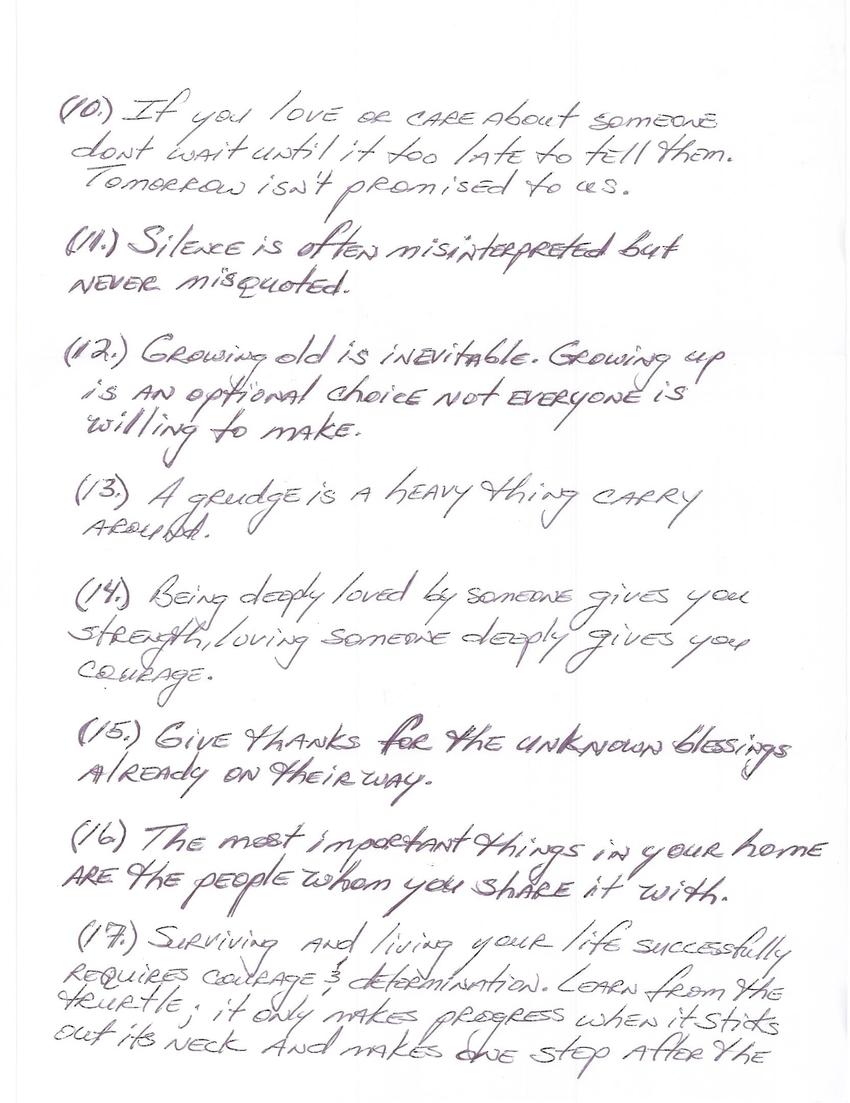 (10.) If you love or care about someone
dont wait until it too late to tell them.
Tomorrow isn't promised to us.
(11.) Silence is often misinterpreted but
never misquoted.
(12.) Growing old is inevitable. Growing up
is an optional choice not everyone is
willing to make.
(13.) A grudge is a heavy thing carry
around.
(14.) Being deeply loved by someone gives you
strength, loving someone deeply gives you
courage.
(15.) Give thanks for the unknown blessings
already on their way.
(16) The most important things in your home
are the people whom you share it with.
(17.) Surviving and living your life successfully
requires courage & determination. Learn from the
trurtle; it only makes progress when it sticks
out its neck and makes one step after the